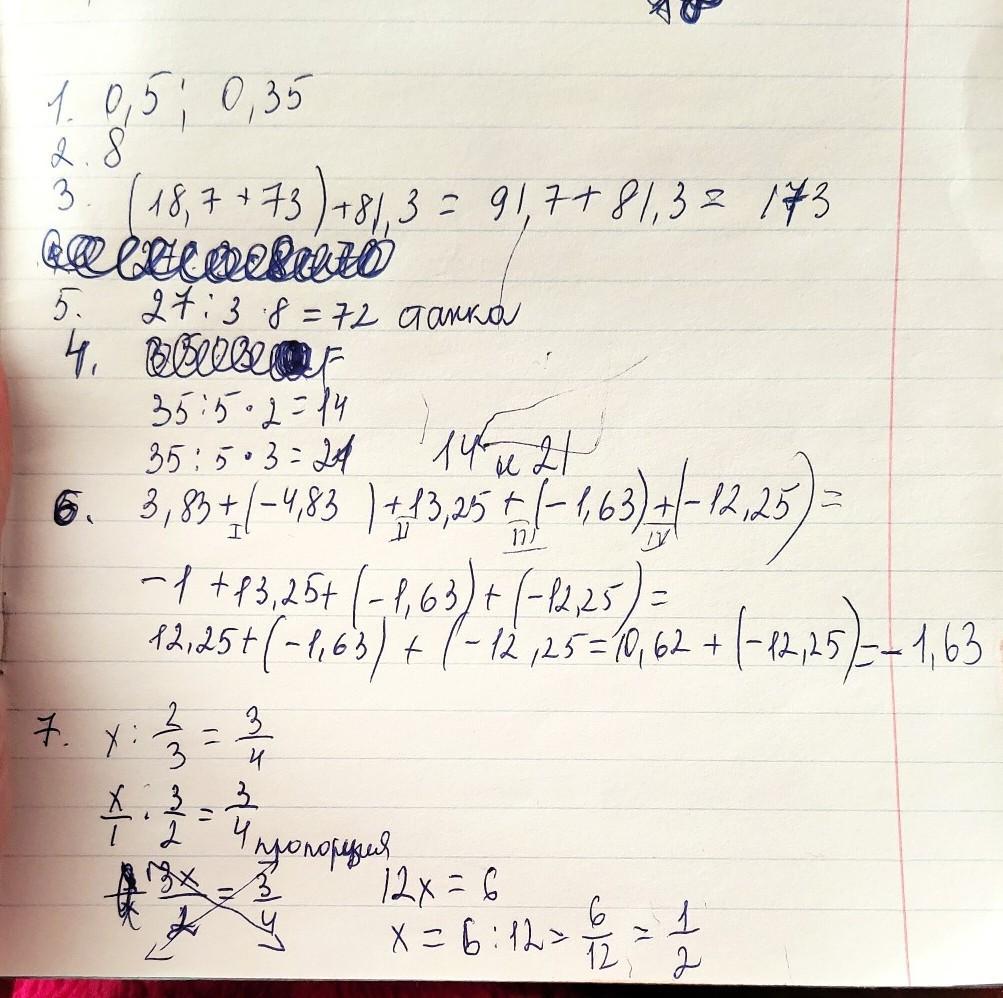 1. 0,5; 0,35
2. 8
3. (18,7+73)+81,3 = 91,7+81,3= 173
5. 27:3·8=72 станка
4. =
35:5·2=14
35:5·3=21 14 и 21
6. 3,83+(-4,83)+13,25+(-1,63)+(-12,25)=
I II III IV
-1+13,25+(-1,63)+(-12,25)=
12,25+(-1,63)+(-12,25=10,62+(-12,25)=-1,63
7. x : 2/3 = 3/4
x/1 · 3/2 = 3/4
пропорция
3x/2 = 3/4 12x = 6
x = 6:12 = 6/12 = 1/2